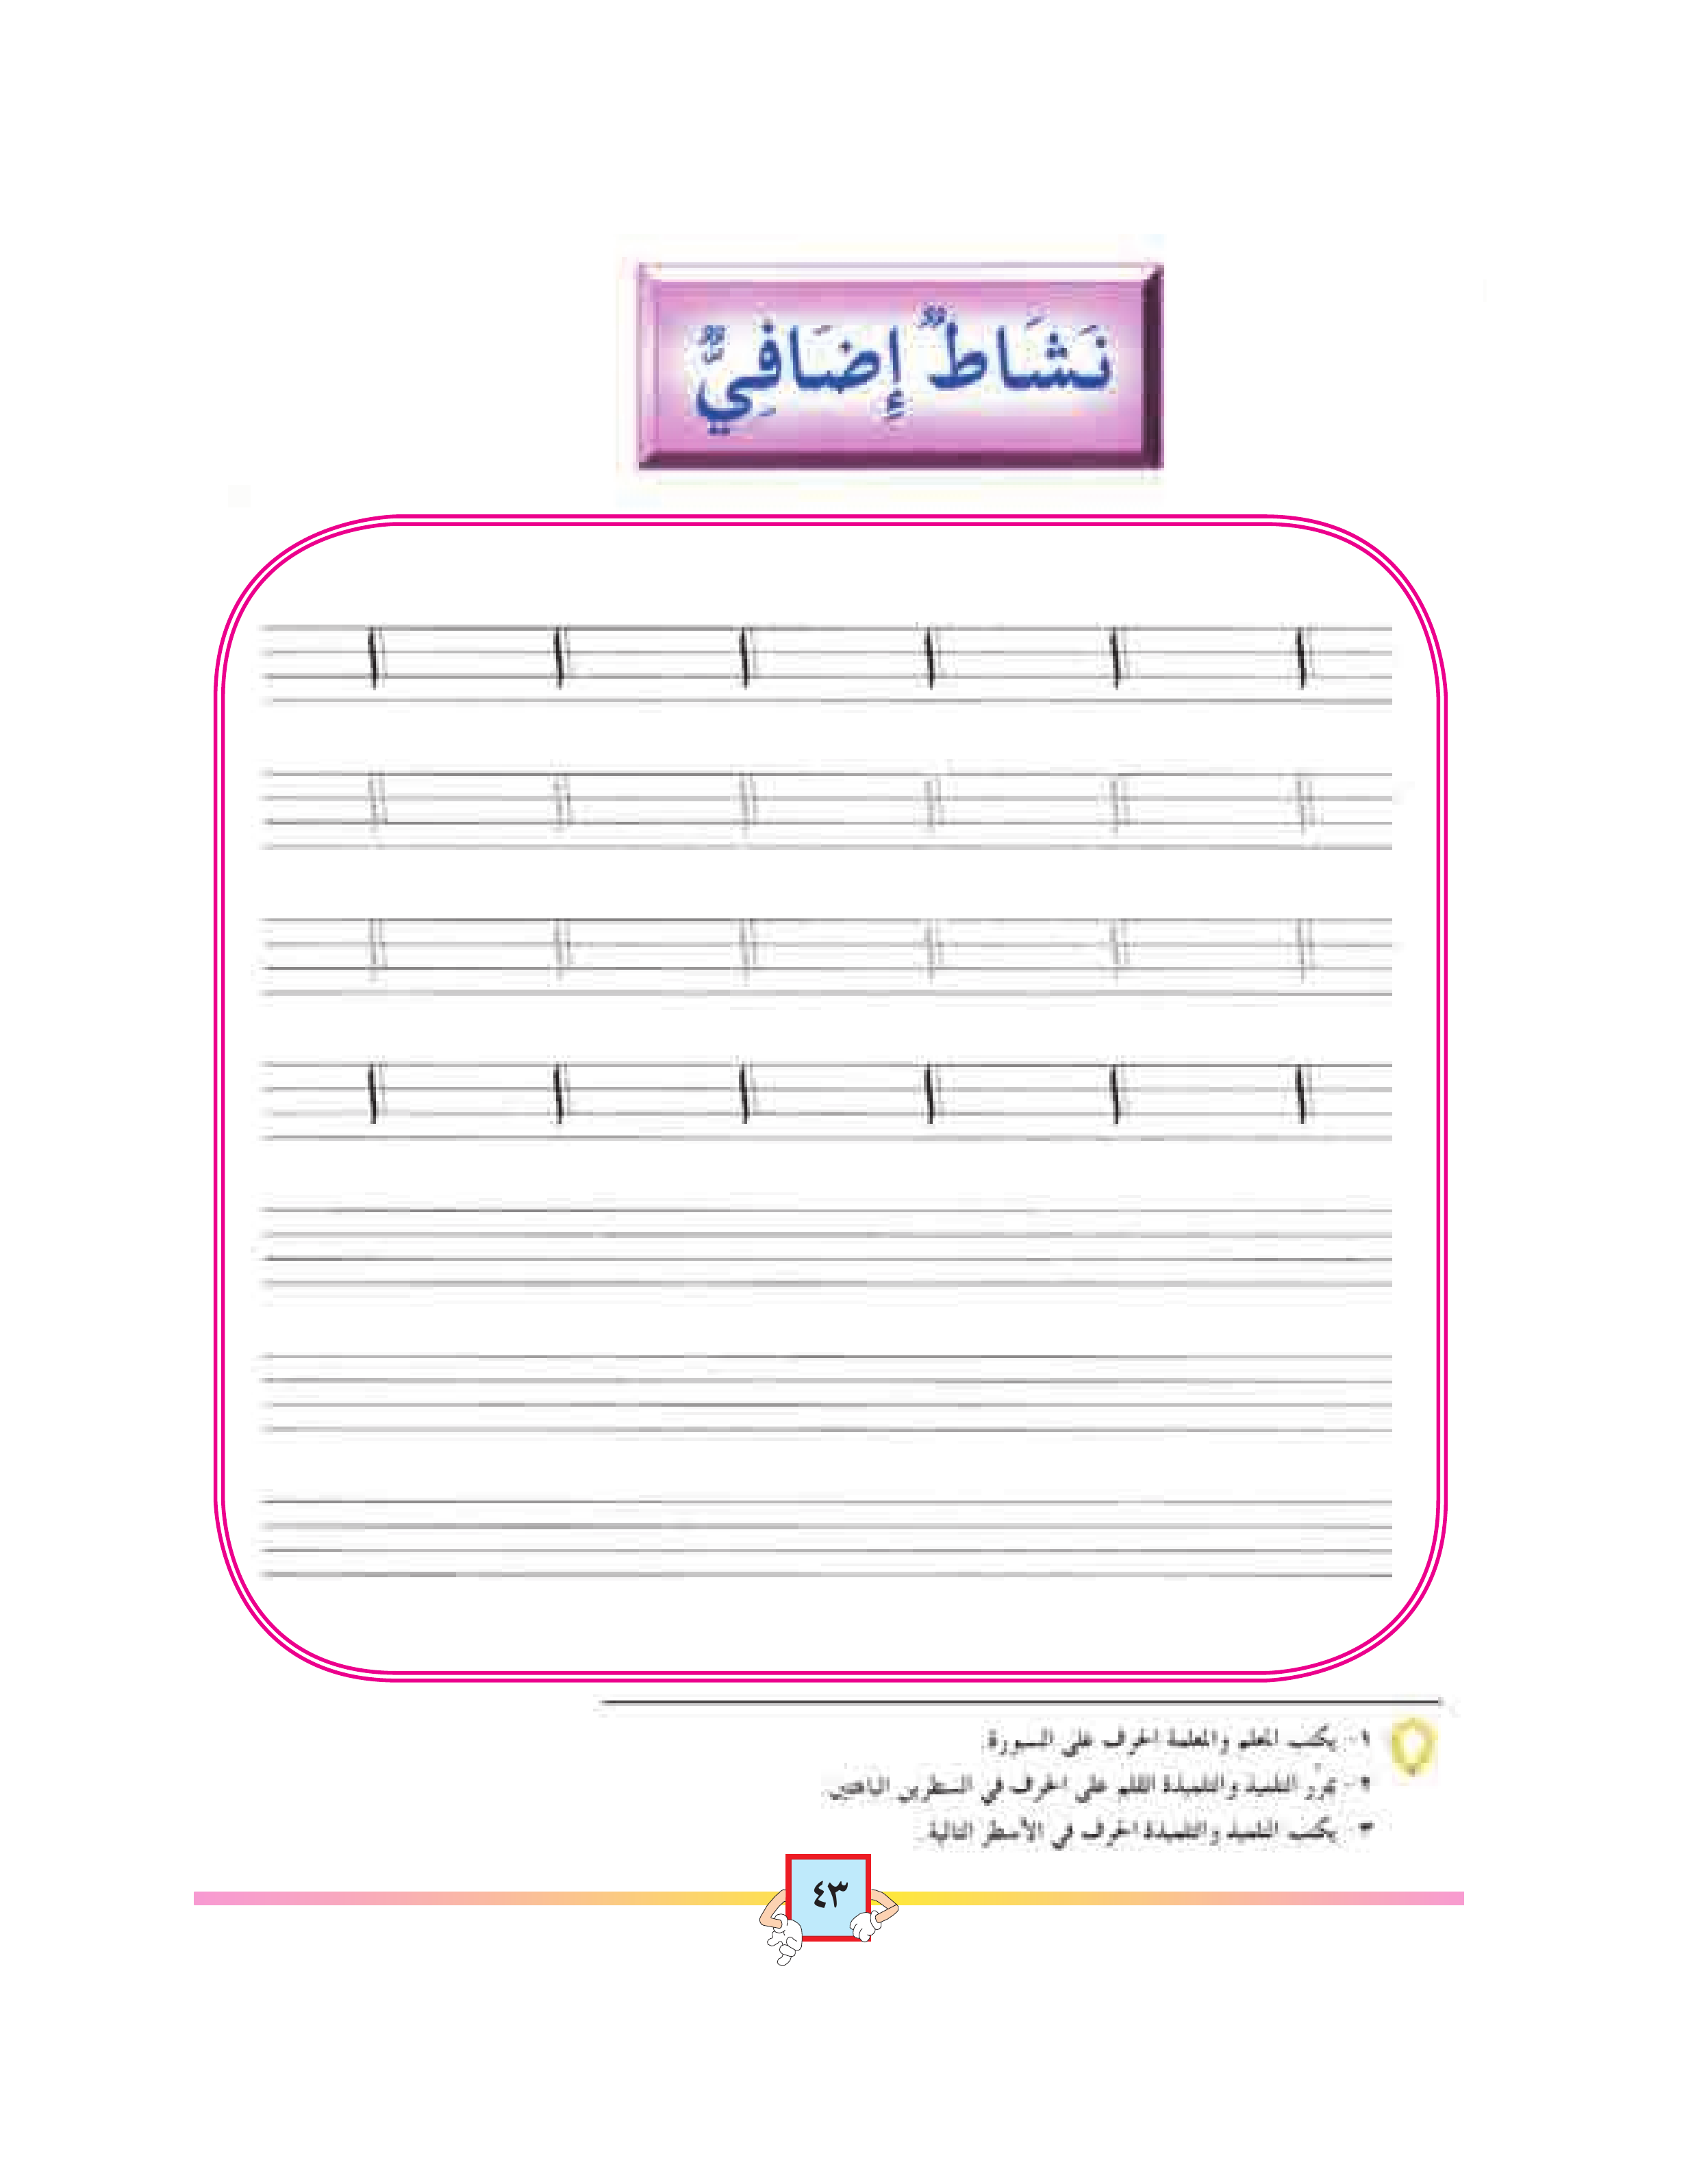 نَشَاطٌ إِضَافِيٌّ
ا ا ا ا ا ا
ا ا ا ا ا ا
ا ا ا ا ا ا
ا ا ا ا ا ا
١- يكتب المعلم والمعلمة الحرف على السبورة.
٢- يمرِّر التلميذ والتلميذة القلم على الحرف في السطرين الباهتين.
٣- يكتب التلميذ والتلميذة الحرف في الأسطر التالية.
٤٣